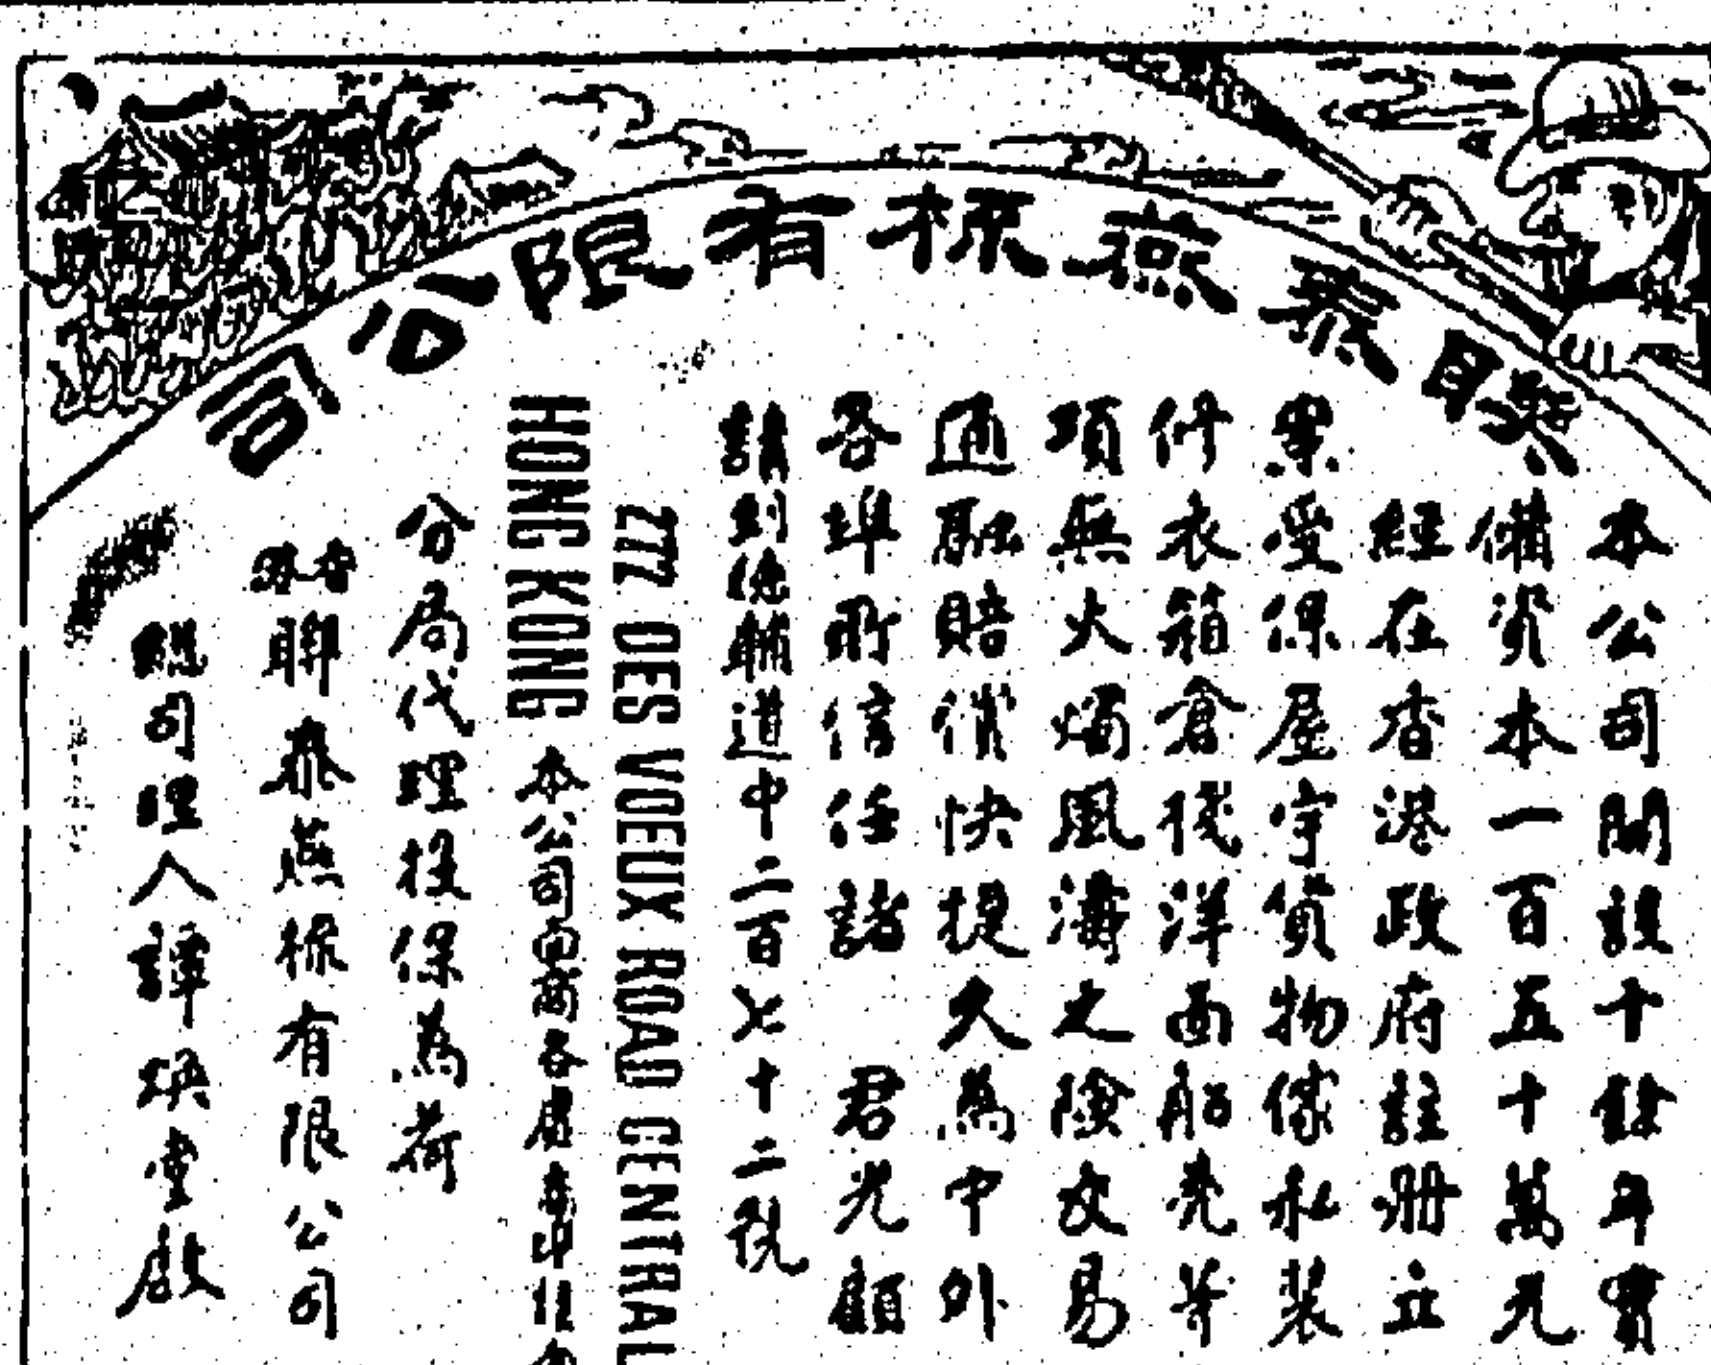 聯泰燕梳有限公司
本公司開設十餘年實
備資本一百五十萬元
經在香港政府註冊立
案受保屋宇貨物傢私裝
什衣箱倉棧洋面船壳等
項無火燭風濤之險交易
通融賠償快捷久為中外
各埠所信任諸 君光顧
請到德輔道中二百七十二號
272 DES VOEUX ROAD CENTRAL
HONG KONG 本公司各
分局代理投保為荷
香港聯泰燕梳有限公司
總司理人譚煥堂啟